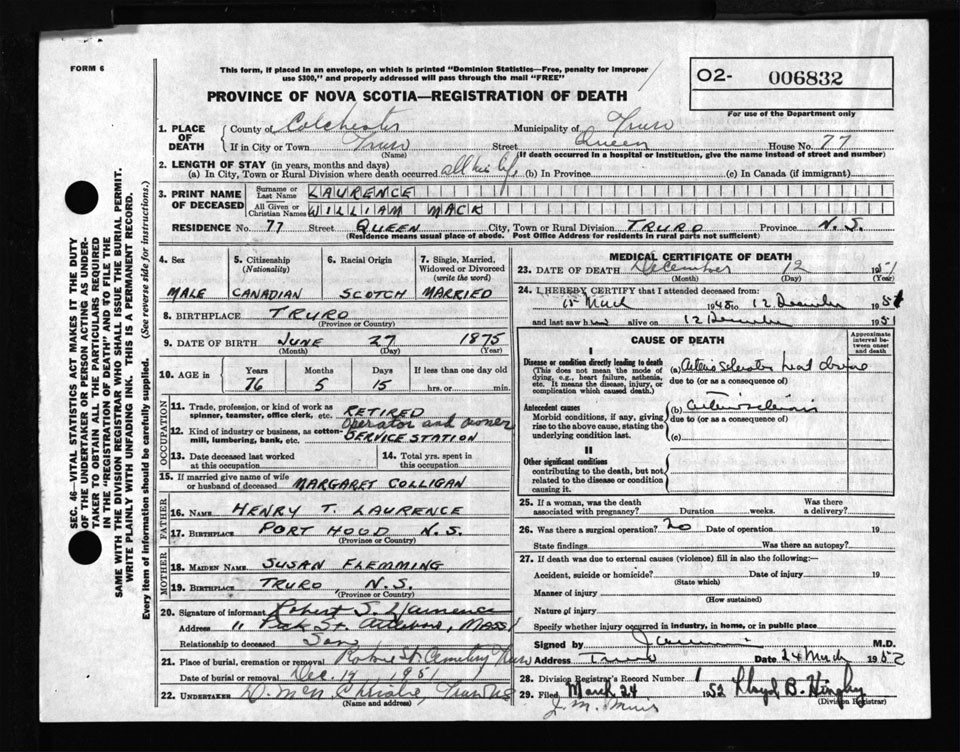 FORM 6
This form, if placed in an envelope, on which is printed "Dominion Statistics—Free, penalty for improper
use $300," and properly addressed will pass through the mail "FREE"
PROVINCE OF NOVA SCOTIA—REGISTRATION OF DEATH
02- 006832
For use of the Department only
SEC. 46—VITAL STATISTICS ACT MAKES IT THE DUTY
OF THE UNDERTAKER OR PERSON ACTING AS UNDER-
TAKER TO OBTAIN ALL THE PARTICULARS REQUIRED
IN THE "REGISTRATION OF DEATH" AND TO FILE THE
SAME WITH THE DIVISION REGISTRAR WHO SHALL ISSUE THE BURIAL PERMIT.
WRITE PLAINLY WITH UNFADING INK. THIS IS A PERMANENT RECORD.
Every item of information should be carefully supplied. (See reverse side for instructions.)
1. PLACE OF DEATH County of Colchester Municipality of Truro
If in City or Town Truro Street Queen House No. 77
(Name) (If death occurred in a hospital or institution, give the name instead of street and number)
2. LENGTH OF STAY (in years, months and days)
(a) In City, Town or Rural Division where death occurred all his life (b) In Province (c) In Canada (if immigrant)
3. PRINT NAME OF DECEASED Surname or Last Name LAURENCE
All Given or Christian Names WILLIAM MACK
RESIDENCE No. 77 Street QUEEN City, Town or Rural Division TRURO Province N.S.
(Residence means usual place of abode. Post Office Address for residents in rural parts not sufficient)
4. Sex 5. Citizenship (Nationality) 6. Racial Origin 7. Single, Married, Widowed or Divorced (write the word)
MALE CANADIAN SCOTCH MARRIED
8. BIRTHPLACE TRURO
(Province or Country)
9. DATE OF BIRTH JUNE 27 1875
(Month) (Day) (Year)
10. AGE in Years Months Days If less than one day old
76 5 15 hrs. or min.
OCCUPATION
11. Trade, profession, or kind of work as spinner, teamster, office clerk, etc. RETIRED
operator and owner
12. Kind of industry or business, as cotton-mill, lumbering, bank, etc. SERVICE STATION
13. Date deceased last worked at this occupation 14. Total yrs. spent in this occupation
15. If married give name of wife or husband of deceased MARGARET COLLIGAN
FATHER
16. NAME HENRY T. LAURENCE
17. BIRTHPLACE PORT HOOD N.S.
(Province or Country)
MOTHER
18. MAIDEN NAME SUSAN FLEMMING
19. BIRTHPLACE TRURO N.S.
(Province or Country)
20. Signature of informant Robert S. Laurence
Address 11 Peck St. Attleboro, MASS
Relationship to deceased Son
21. Place of burial, cremation or removal Robie St. Cemetery Truro
Date of burial or removal Dec. 1951
22. UNDERTAKER Truro NS
(Name and address)
MEDICAL CERTIFICATE OF DEATH
23. DATE OF DEATH December 12 1951
(Month) (Day) (Year)
24. I HEREBY CERTIFY that I attended deceased from:
15 March 1948 to 12 December 1951
and last saw him alive on 12 December 1951
CAUSE OF DEATH Approximate interval between onset and death
I
Disease or condition directly leading to death (a) heart disease
(This does not mean the mode of dying, e.g., heart failure, asthenia, etc. It means the disease, injury, or complication which caused death.)
due to (or as a consequence of)
Antecedent causes (b) arteriosclerosis
Morbid conditions, if any, giving rise to the above cause, stating the underlying condition last.
due to (or as a consequence of)
(c)
II
Other significant conditions
contributing to the death, but not related to the disease or condition causing it.
25. If a woman, was the death associated with pregnancy? Duration weeks. Was there a delivery?
26. Was there surgical operation? no Date of operation 19
State findings Was there an autopsy?
27. If death was due to external causes (violence) fill in also the following:
Accident, suicide or homicide? Date of injury 19
(State which)
Manner of injury
(How sustained)
Nature of injury
Specify whether injury occurred in industry, in home, or in public place
Signed by M.D.
Address Truro Date 24 March 1952
28. Division Registrar's Record Number 1
29. Filed March 24 1952 Lloyd B. Hingley
(Division Registrar)
J. M. Muir